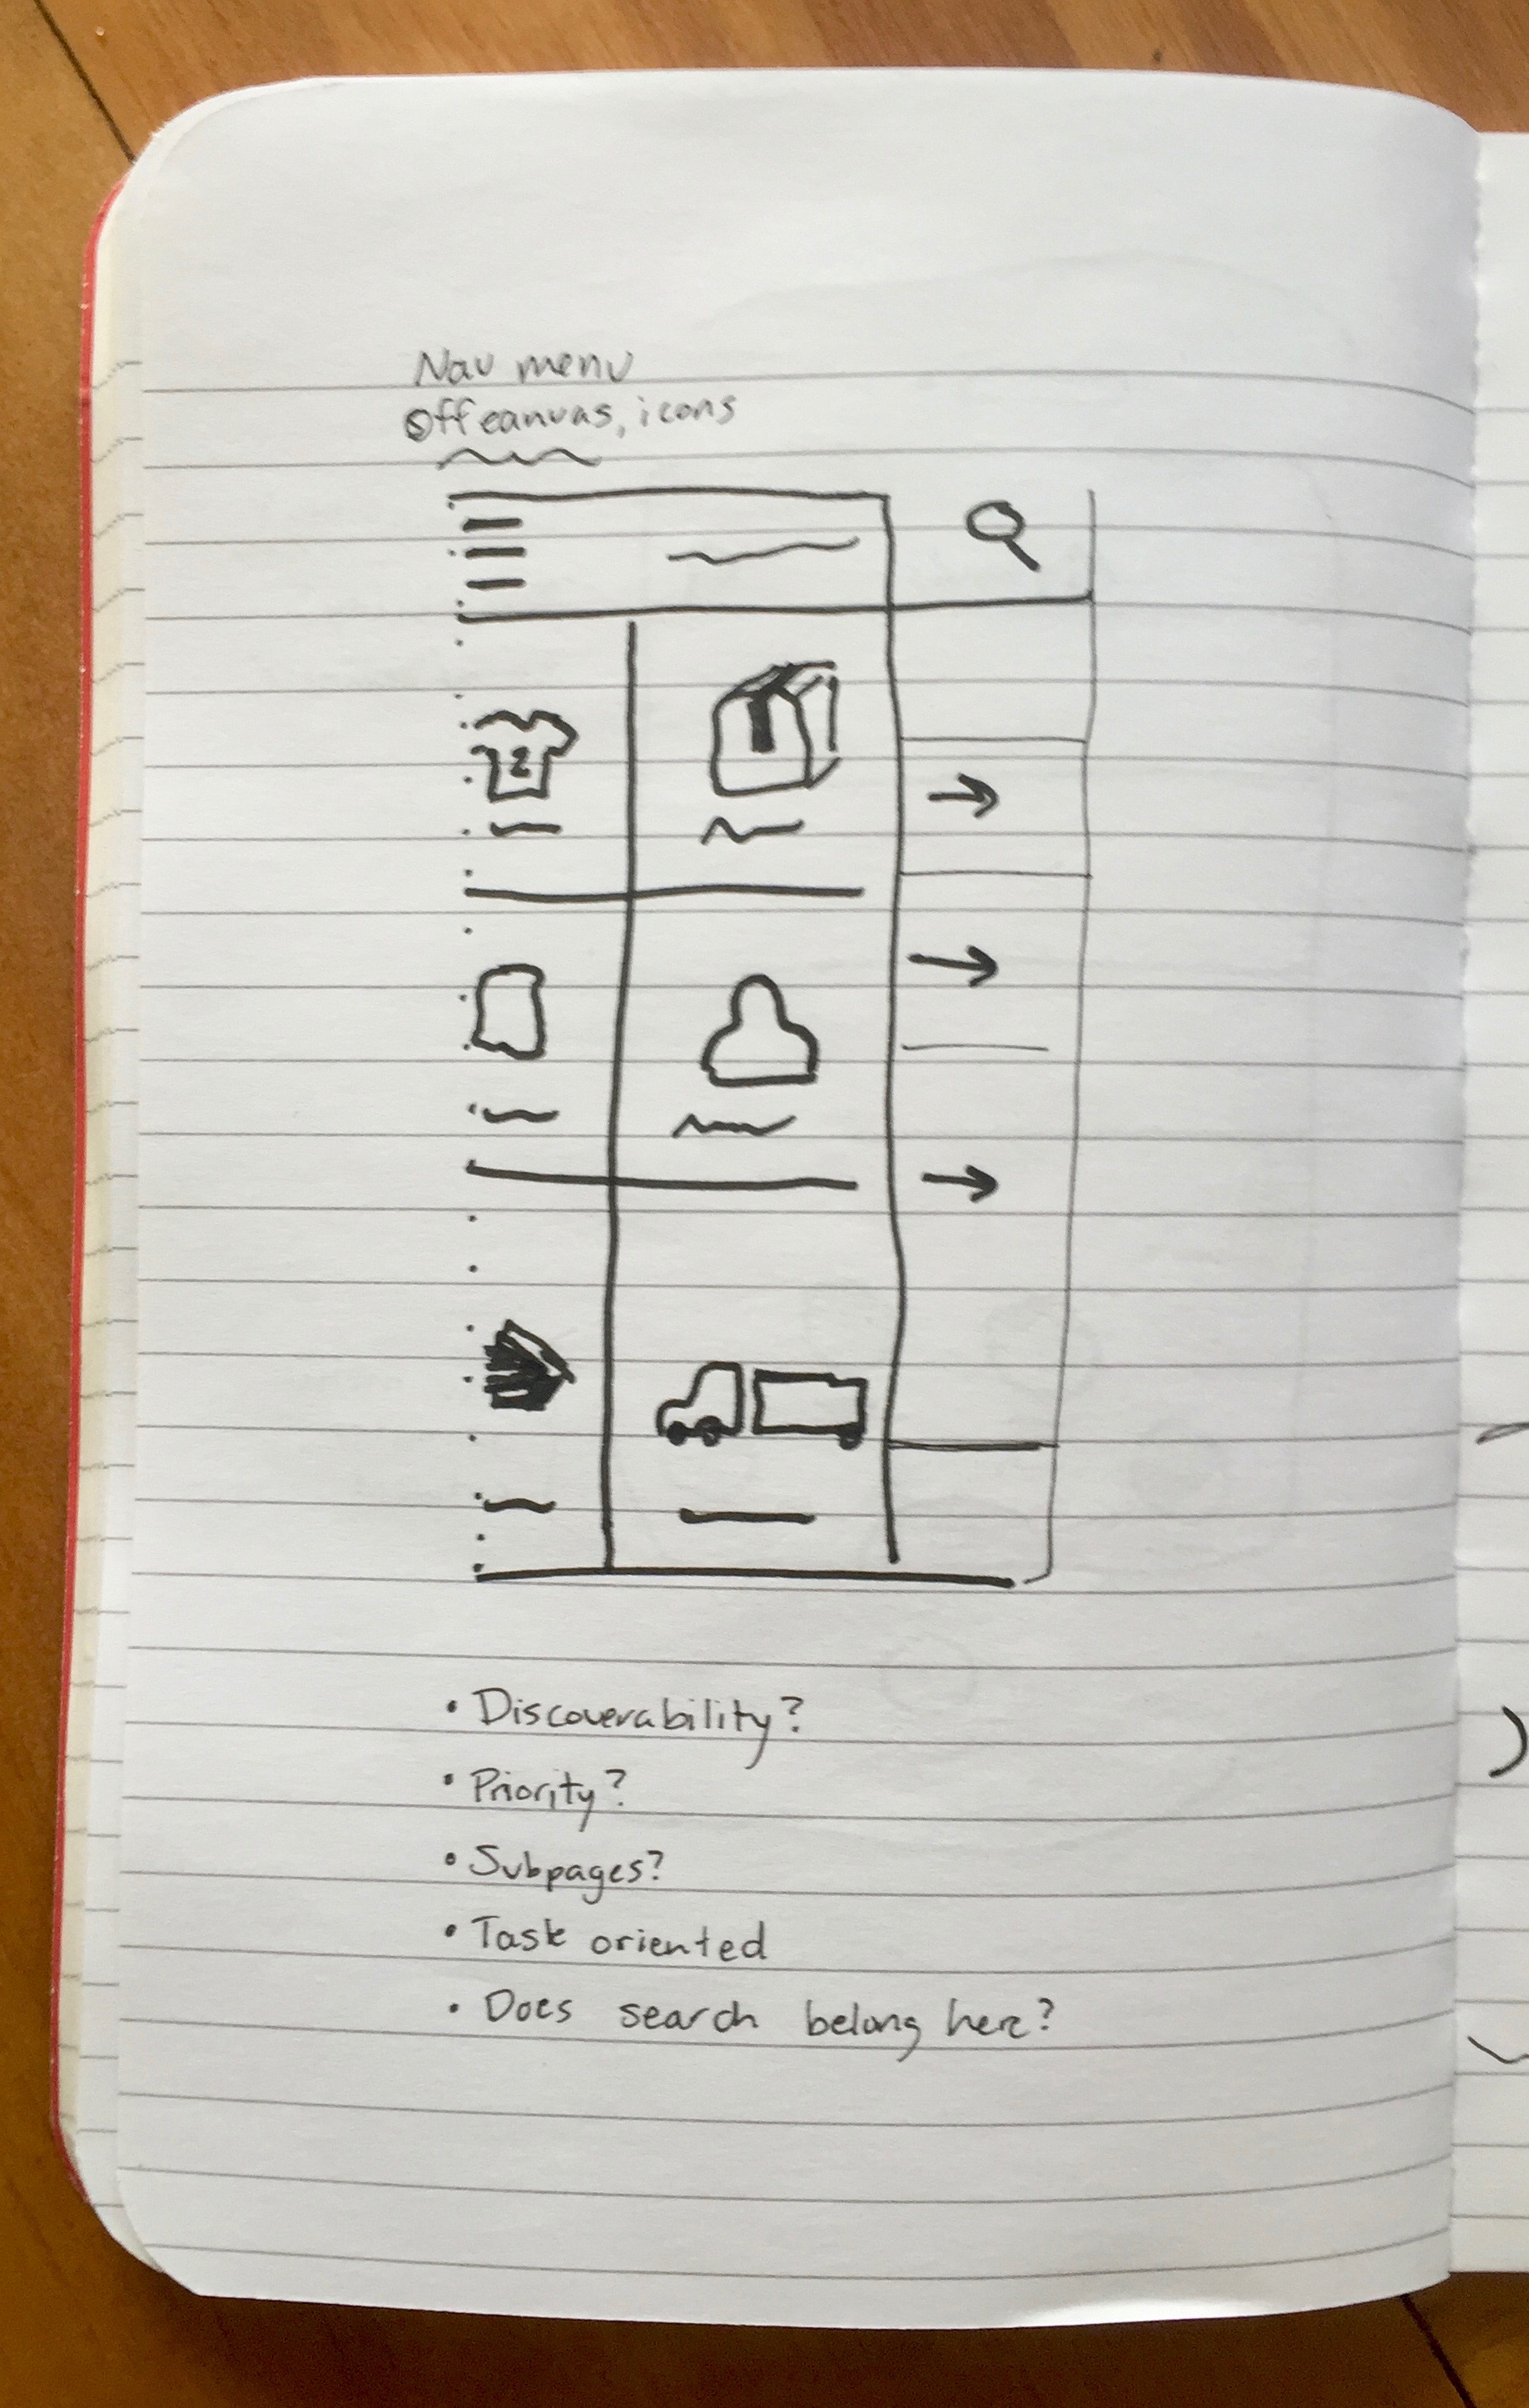 Nav menu
Offcanvas, icons
2
• Discoverability?
• Priority?
• Subpages?
• Task oriented
• Does search belong here?